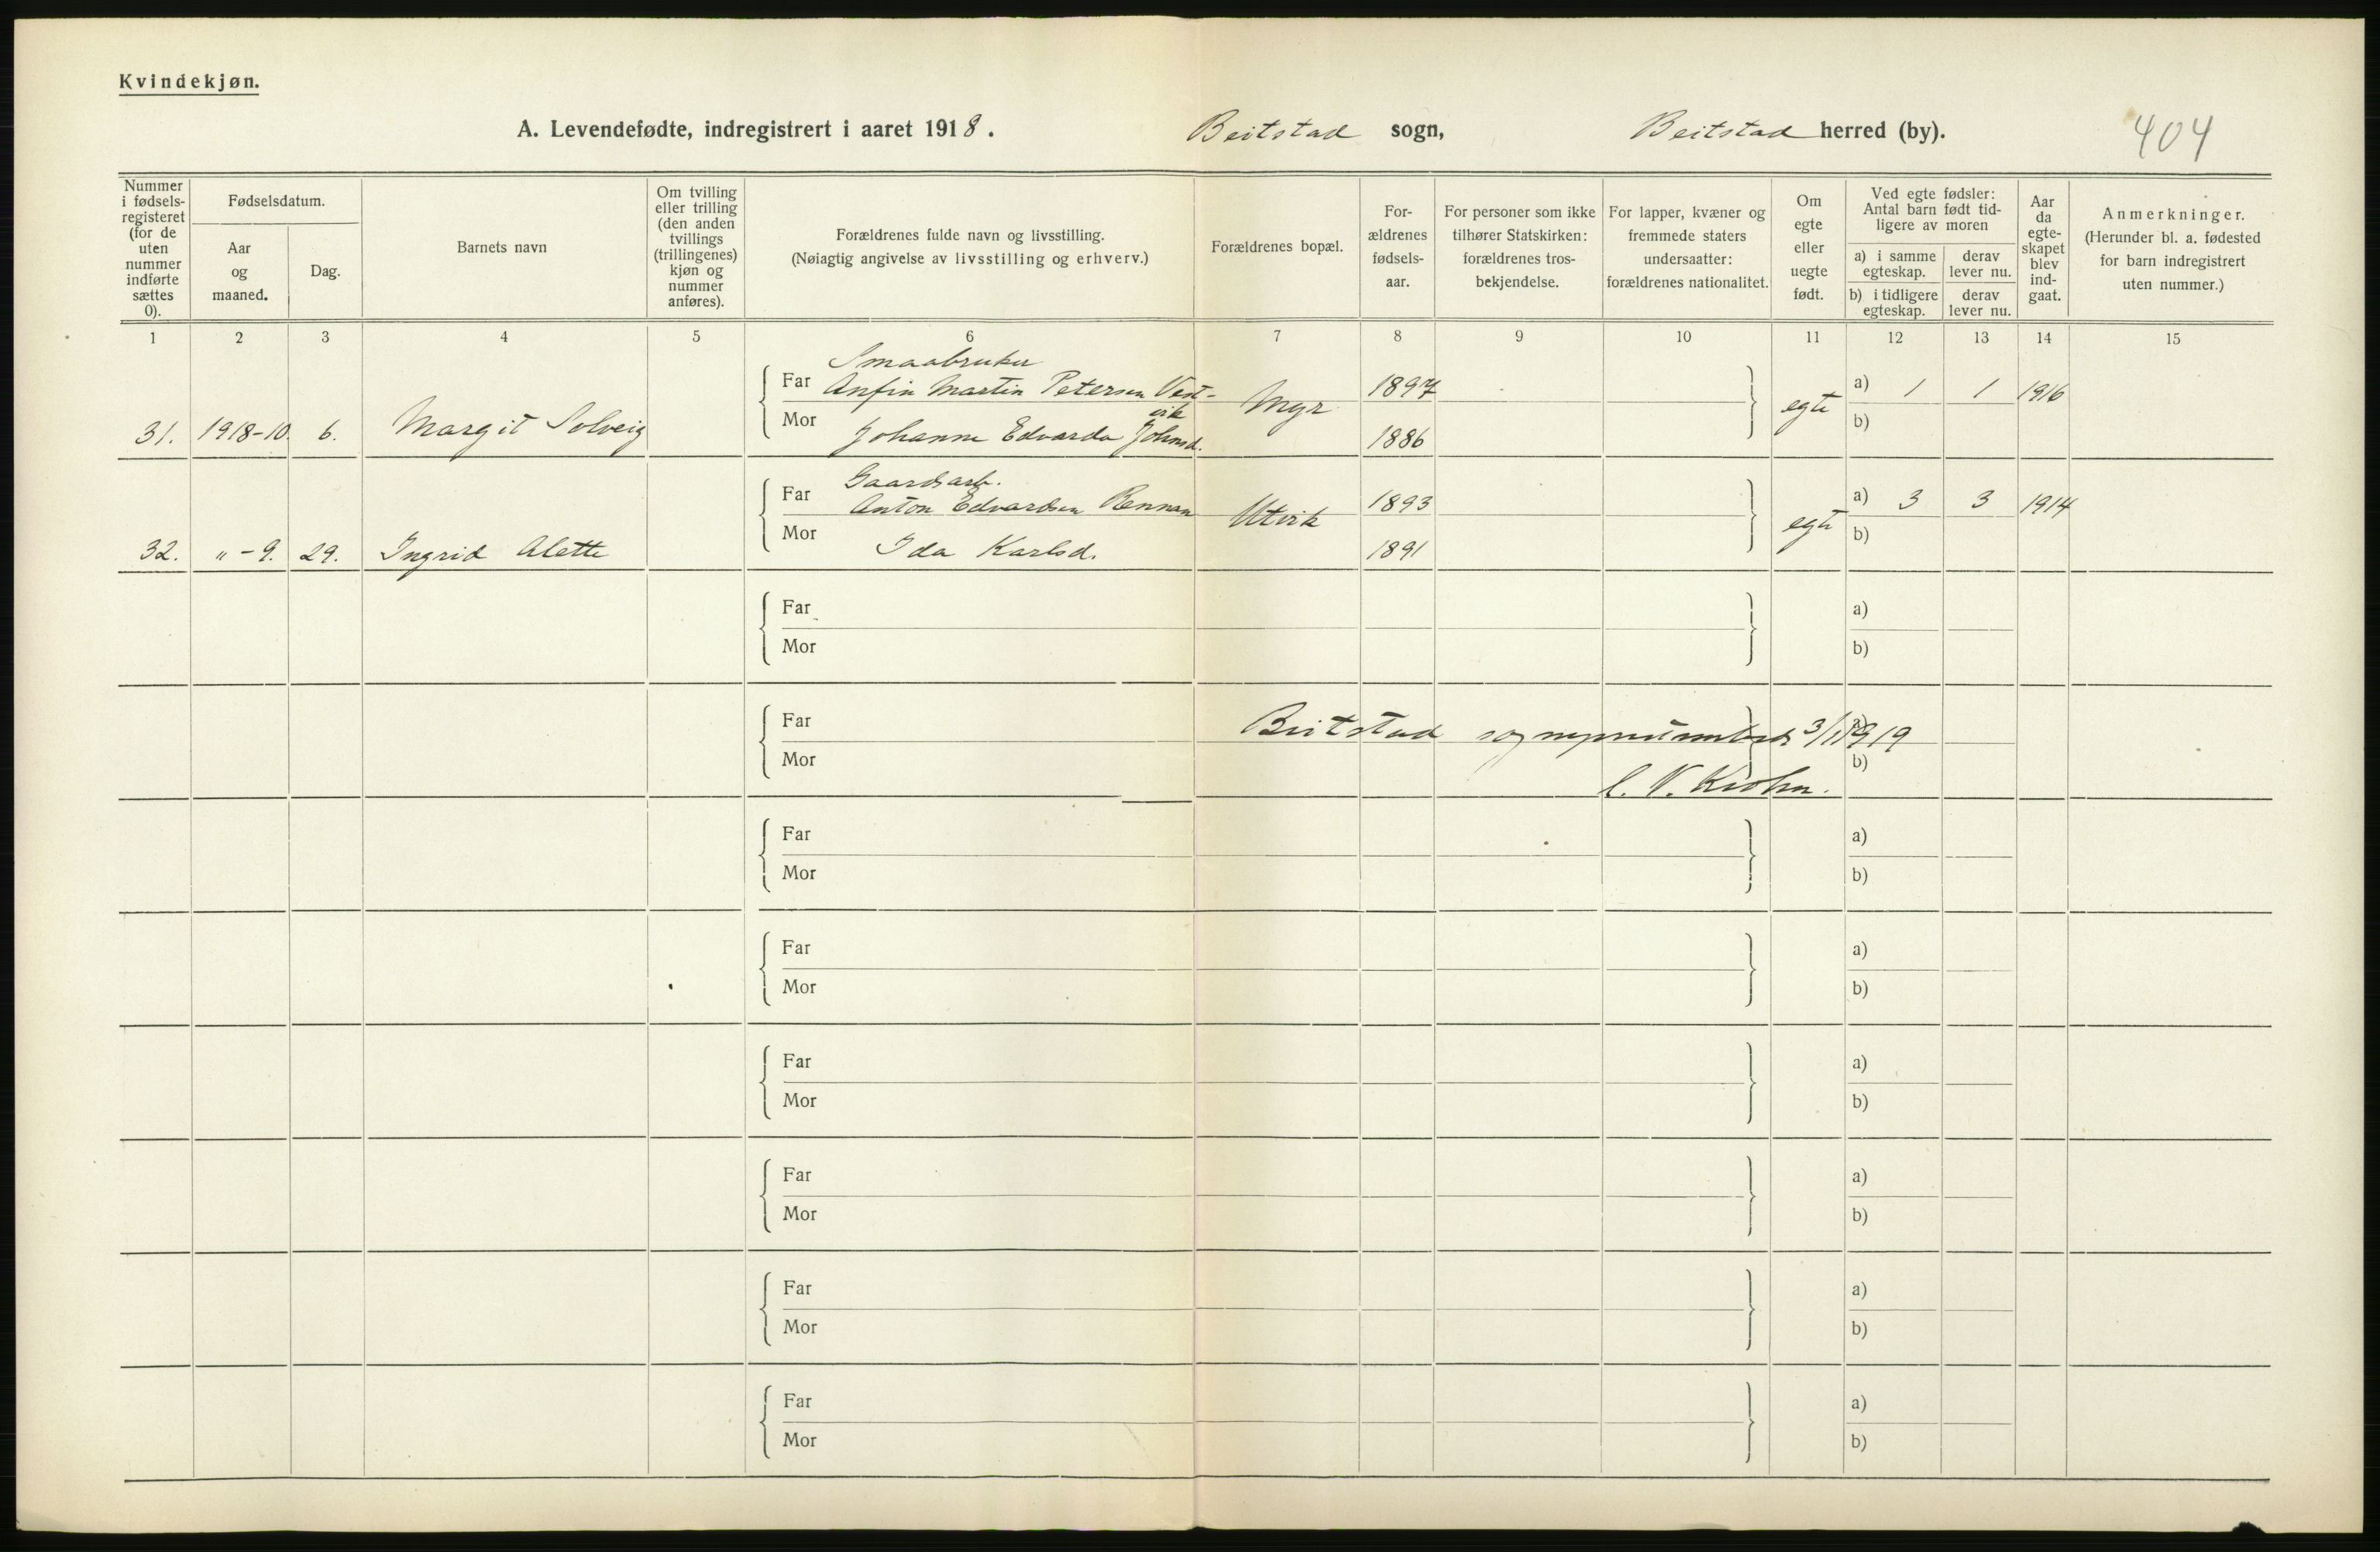 Kvindekjøn.
A. Levendefødte, indregistrert i aaret 1918. Beitstad sogn, Beitstad herred (by). 404
Nummer i fødsels-registeret (for de uten nummer indførte sættes 0).
Fødselsdatum.
Aar og maaned.
Dag.
Barnets navn
Om tvilling eller trilling (den anden tvillings (trillingenes) kjøn og nummer anføres).
Forældrenes fulde navn og livsstilling.
(Nøiagtig angivelse av livsstilling og erhverv.)
Forældrenes bopæl.
For-ældrenes fødsels-aar.
For personer som ikke tilhører Statskirken: forældrenes tros-bekjendelse.
For lapper, kvæner og fremmede staters undersaatter: forældrenes nationalitet.
Om egte eller uegte født.
Ved egte fødsler: Antal barn født tid-ligere av moren
a) i samme egteskap.
derav lever nu.
b) i tidligere egteskap.
derav lever nu.
Aar da egte-skapet blev ind-gaat.
Anmerkninger.
(Herunder bl. a. fødested for barn indregistrert uten nummer.)
1 2 3 4 5 6 7 8 9 10 11 12 13 14 15
Smaabruker
Far Anfin Martin Petersen Vest-vik Myr 1897 egte a) 1 1 1916
31. 1918-10. 6. Margit Solveig Mor Johanne Edvarda Johnsd. 1886 b)
Gaardsarb.
Far Anton Edvardsen Rennan Utvik 1893 egte a) 3 3 1914
32. " - 9. 29. Ingrid Alette Mor Ida Karlsd. 1891 b)
Far a)
Mor b)
Far Beitstad 3/1 1919 a)
Mor C. V. Krohn. b)
Far a)
Mor b)
Far a)
Mor b)
Far a)
Mor b)
Far a)
Mor b)
Far a)
Mor b)
Far a)
Mor b)